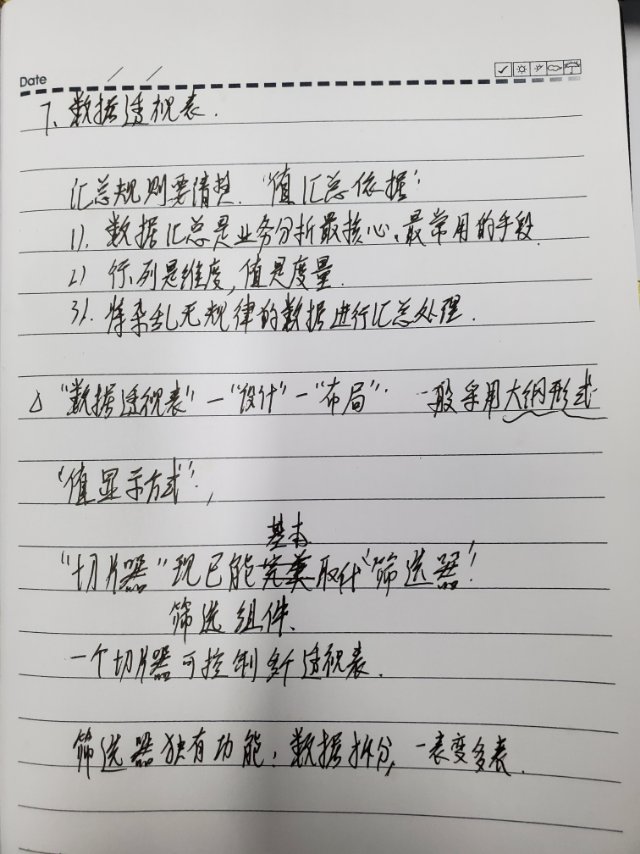 Date
7、数据透视表.
汇总规则要清楚."值汇总依据"
1).数据汇总是业务分析最核心、最常用的手段.
2)行、列是维度,值是度量.
3).将杂乱无规律的数据进行汇总处理.
△"数据透视表"—"设计"—"布局".一般采用大纲形式
"值显示方式",
基本
"切片器"现已能完美取代"筛选器"!
筛选组件.
一个切片器可控制多个透视表.
筛选器独有功能:数据拆分,一表变多表.